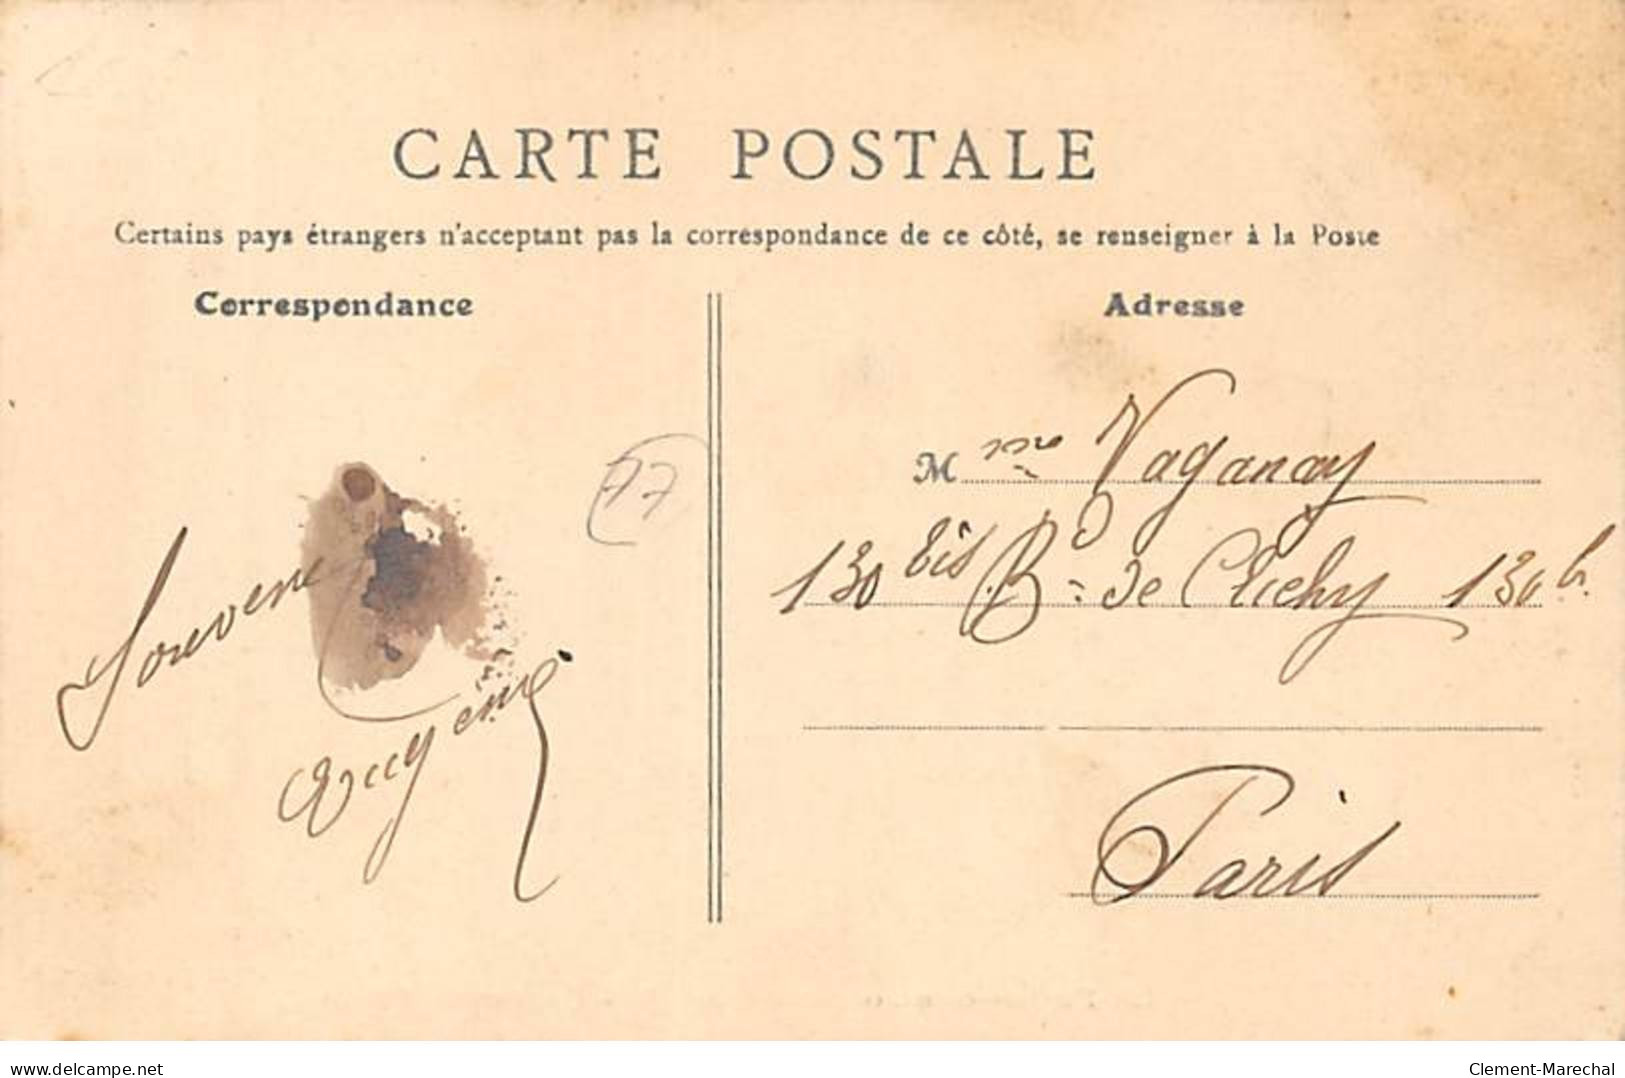 CARTE POSTALE
Certains pays étrangers n'acceptant pas la correspondance de ce côté, se renseigner à la Poste
Correspondance
Adresse
77
Souvenir
Eugénie
Mme Vaganay
130 bis Bd de Clichy 130 b.
Paris
www.delcampe.net
Clement-Marechal